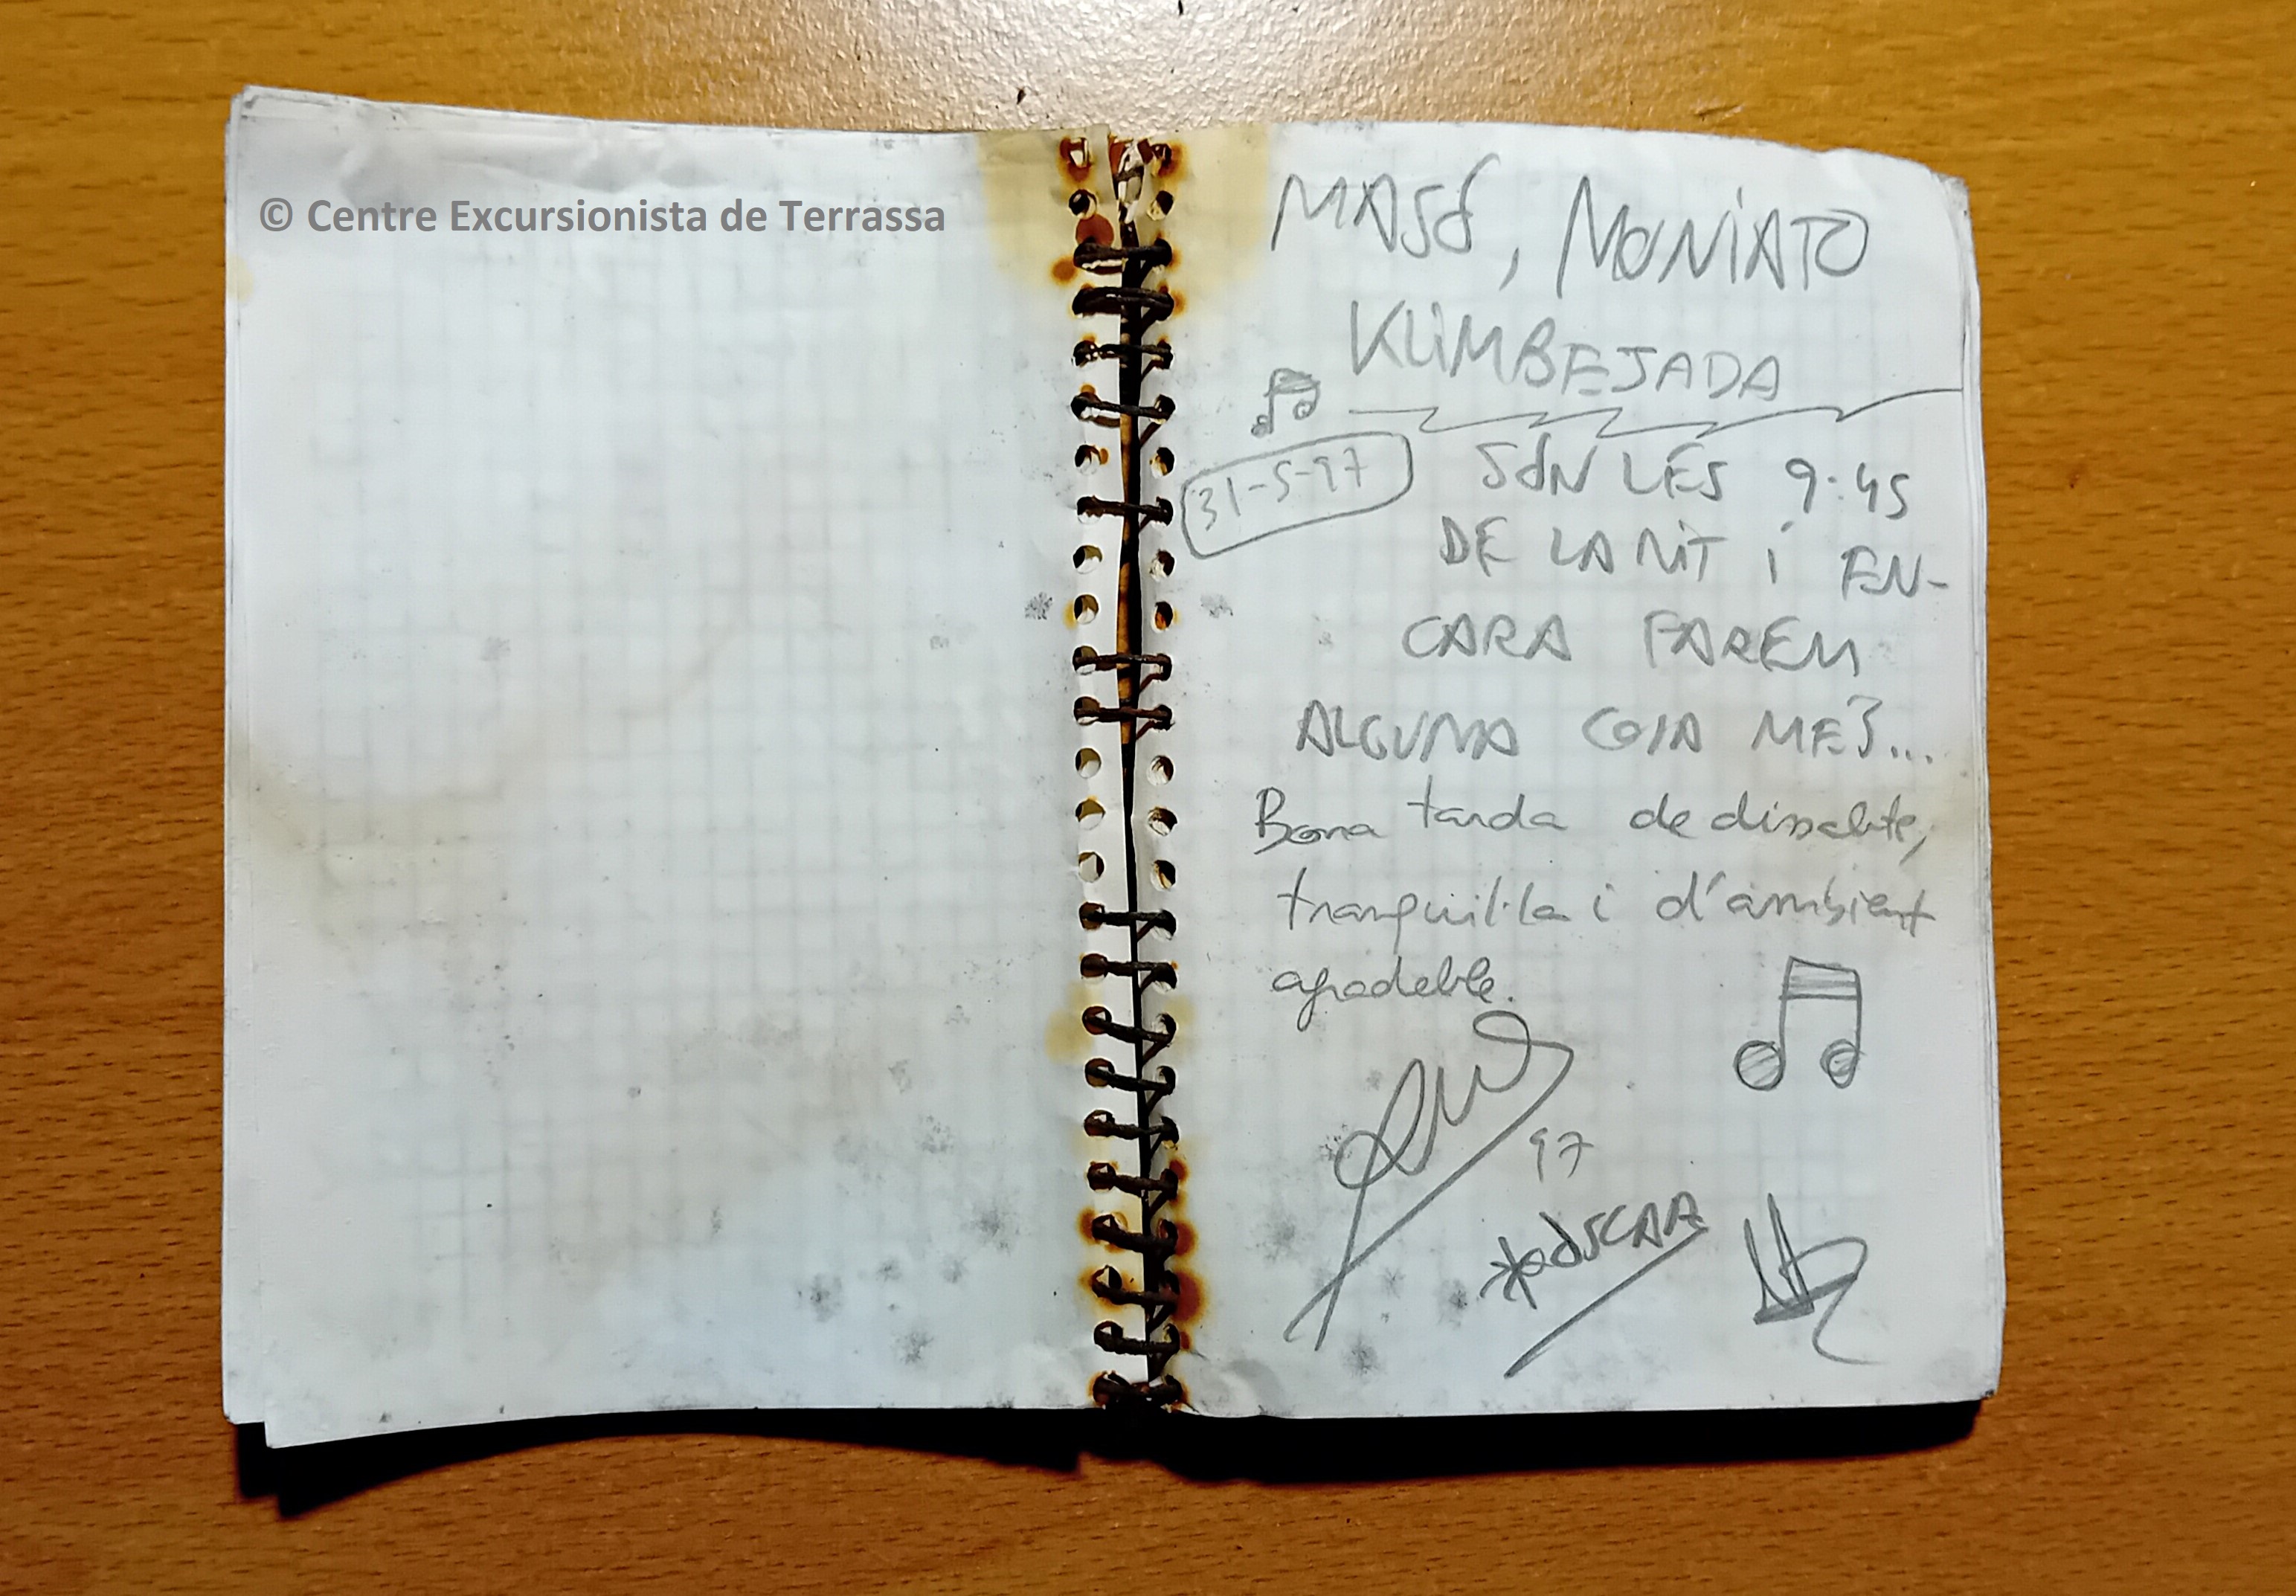 © Centre Excursionista de Terrassa
MASÓ, MONIATO
KLIMBEJADA
31-5-97 SÓN LES 9:45
DE LA NIT I EN-
CARA FAREM
ALGUNA COSA MÉS...
Bona tarda de dissabte,
tranquil·la i d'ambient
agradable.
97
OSCAR